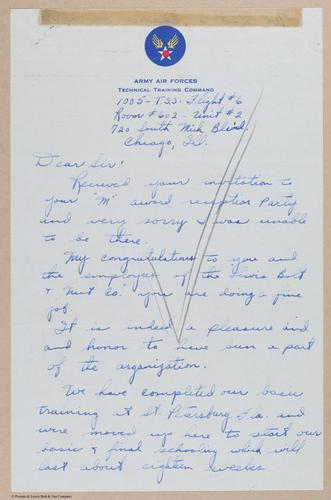 ARMY AIR FORCES
TECHNICAL TRAINING COMMAND
1005 - T.S.S. Flight #6
Room #602 - Unit #2
720 South Mich Blvd.
Chicago, Ill.
Dear Sir:
Recived your invitation to
your "M" award reception Party
and very sorry I was unable
to be there.
My congratulations to you and
the employees of the Lewis Bolt
& Nut Co. you are doing a fine
job.
It is indeed a pleasure and
and honor to have been a part
of the organization.
We have completed our basic
training at St. Petersburg Fla. and
were moved up here to start our
basic & final schooling which will
last about eighteen weekes.